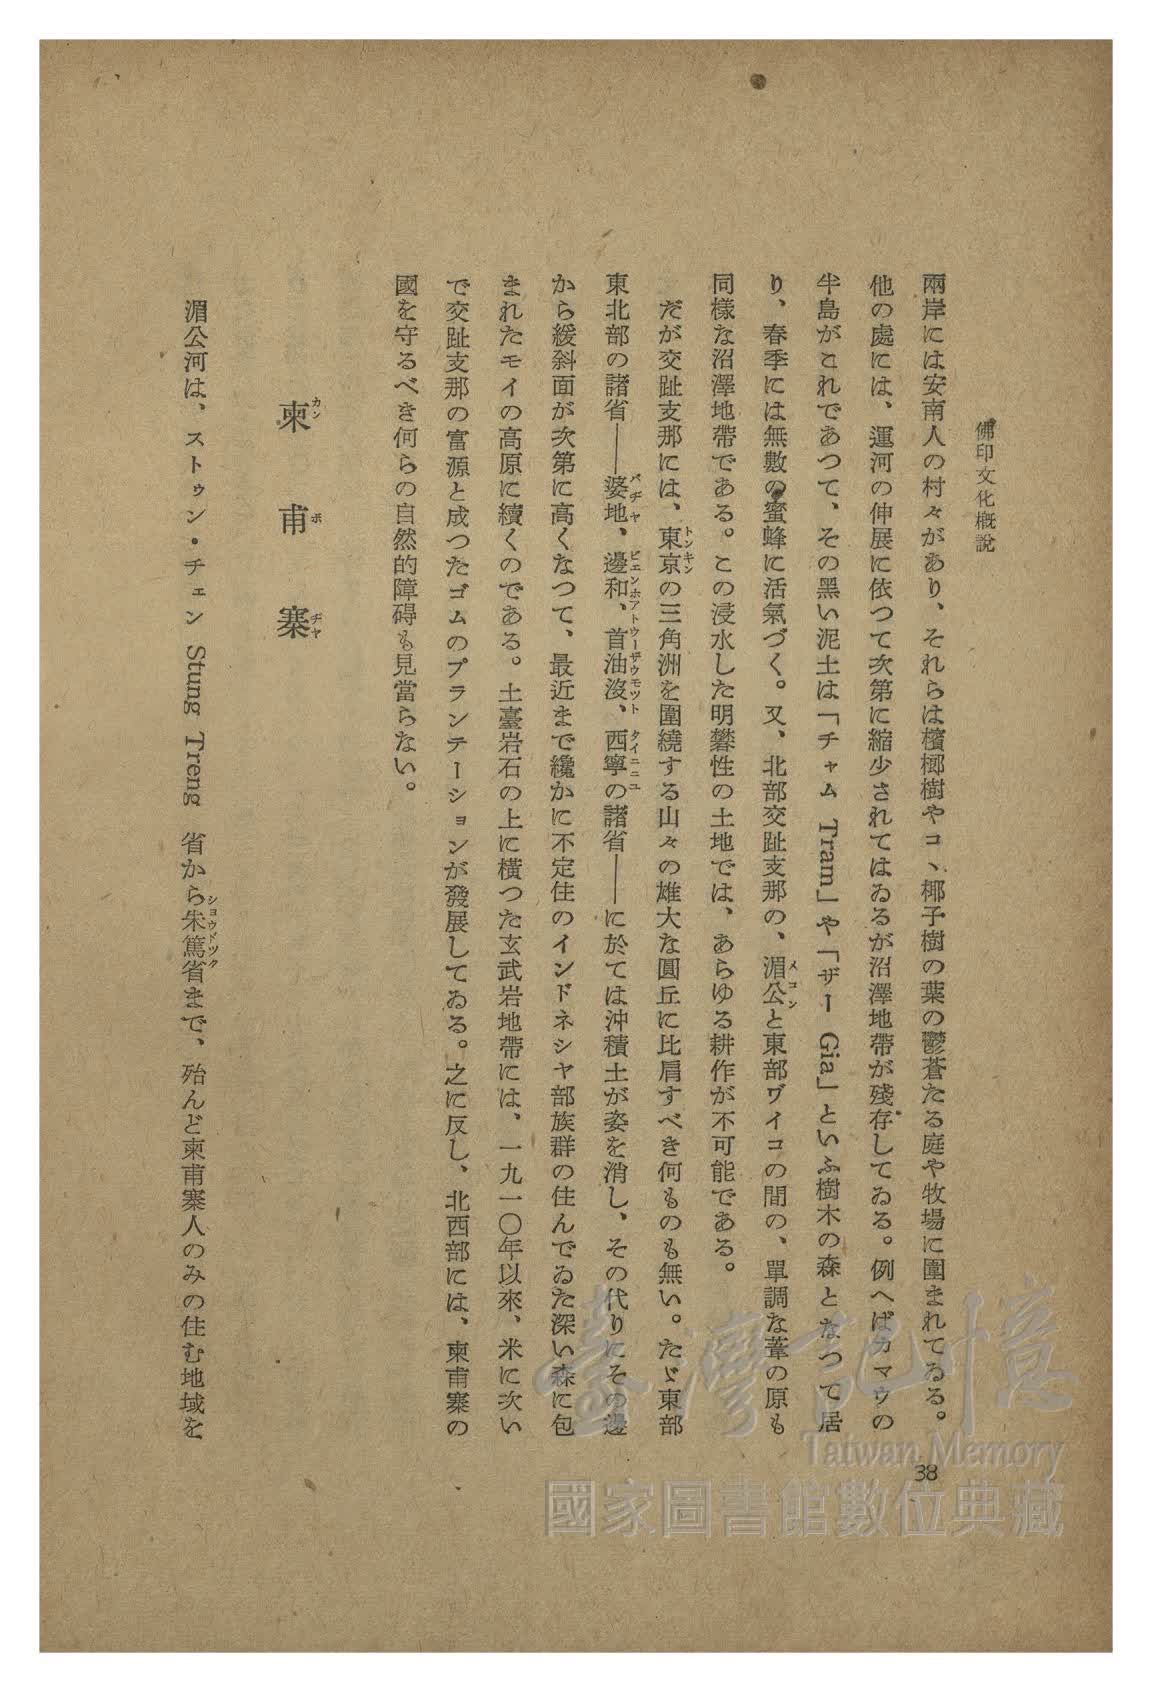 佛印文化概說
兩岸には安南人の村々があり、それらは檳榔樹やコヽ椰子樹の葉の鬱蒼たる庭や牧場に圍まれてゐる。
他の處には、運河の伸展に依つて次第に縮少されてはゐるが沼澤地帶が殘存してゐる。例へばカマウの
半島がこれであつて、その黑い泥土は「チャム Tram」や「ザー Gia」といふ樹木の森となつて居
り、春季には無數の蜜蜂に活氣づく。又、北部交趾支那の、湄公と東部ワイコの間の、單調な葦の原も
同樣な沼澤地帶である。この浸水した明礬性の土地では、あらゆる耕作が不可能である。
だが交趾支那には、東京の三角洲を圍繞する山々の雄大な圓丘に比肩すべき何ものも無い。たゞ東部
東北部の諸省——婆地、邊和、首油沒、西寧の諸省——に於ては沖積土が姿を消し、その代りにその邊
から緩斜面が次第に高くなつて、最近まで纔かに不定住のインドネシヤ部族群の住んでゐた深い森に包
まれたモイの高原に續くのである。土臺岩石の上に橫つた玄武岩地帶には、一九一〇年以來、米に次い
で交趾支那の富源と成つたゴムのプランテーションが發展してゐる。之に反し、北西部には、柬甫寨の
國を守るべき何らの自然的障碍も見當らない。
柬甫寨
カンボヂヤ
湄公河は、ストゥン・チェン Stung Treng 省から朱篤省まで、殆んど柬甫寨人のみの住む地域を
38
臺灣記憶
Taiwan Memory
國家圖書館數位典藏